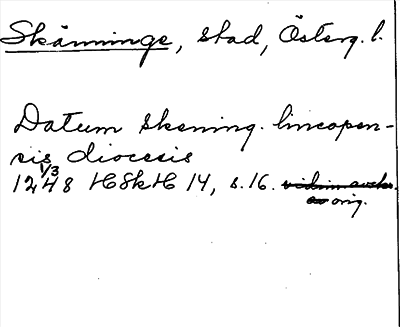 Skänninge, stad, Österg. l.
Datum Skening. lincopen-
sis diocesis
1/3
1248 HSkH 14, s. 16.
orig.